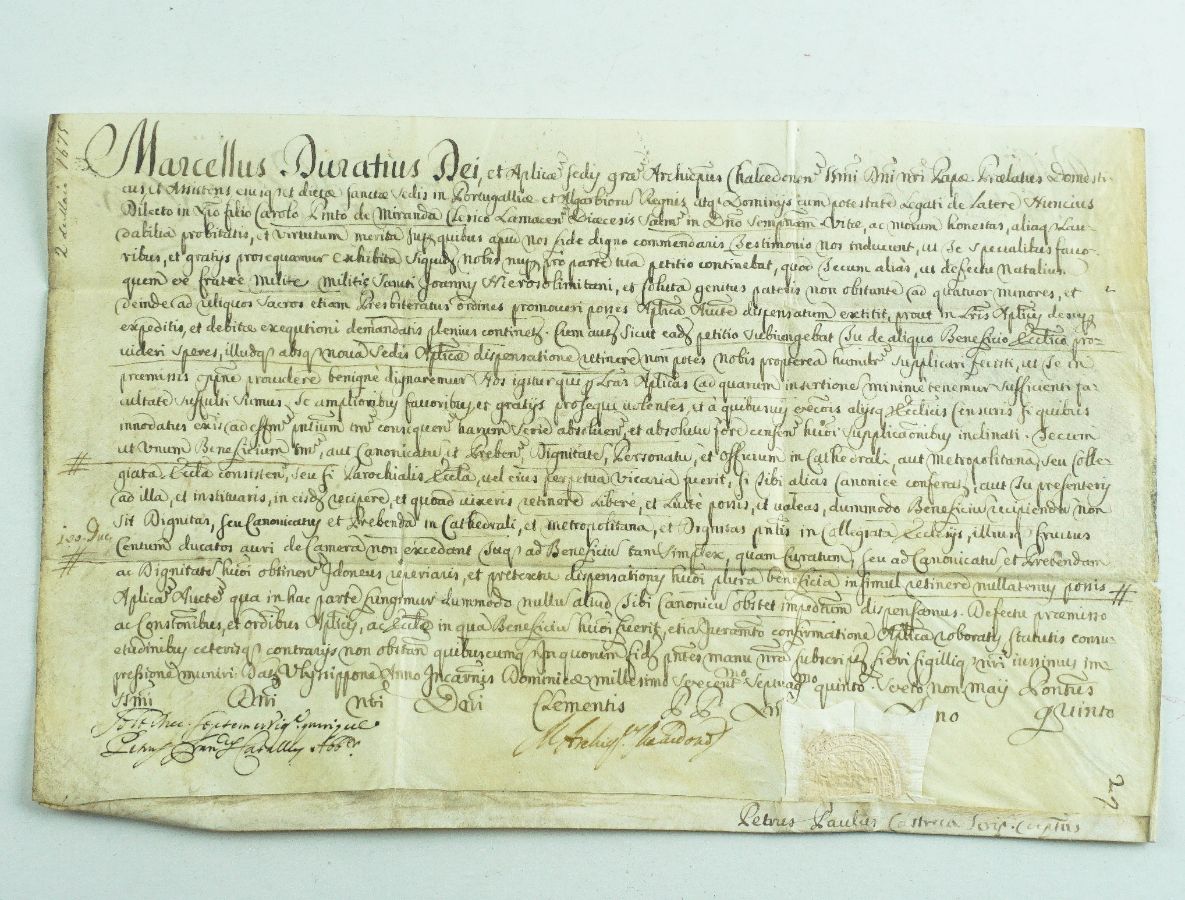 2 de Maio 1675
Marcellus Duratius Dei, et Aplicæ sedis grã Archiepũs Chalcedonen̄ Ssmi Dñi nr̃i Papæ Prælatus domesti-
cus, et Assistens eiusq̃ et dictæ sanctæ sedis in Portugalliæ et Algarbiorũ Regnis, atq̃ Dominijs cum potestate Legati de Latere Nuncius
Dilecto in Xp̃o filio Carolo Pinto de Miranda Clerico Lamacen̄ Diæcesis Salm̃ in Dño sempiternam Vitæ, ac morum honestas, aliaq̃ Lau-
dabilia probitatis, et virtutum merita super quibus apud nos fide digno commendaris testimonio nos inducunt, ut Te specialibus favo-
ribus, et gratijs prosequamur exhibita siquidẽ nobis nuper pro parte tua petitio continebat, quod tecum aliàs, ut defectu Natalium
quem ex fratre milite militiæ Sancti Joannis Hierosolimitani, et soluta genitus pateris non obstante ad quatuor minores, et
deinde ad reliquos sacros etiam Presbiteratus ordines promoveri posses Aplicâ Aucte dispensatum extitit, prout in Lris Aplicis desup
expeditis, et debitæ exequtioni demandatis plenius continet̃. Cum autẽ sicut eadẽ petitio subiungebat Tu de aliquo Beneficio Ecclico pro-
videri speres, illudq̃ absq̃ nova sedis Aplicæ dispensatione retinere non potes nobis propterea humilr̃ supplicari fecisti, ut Te in
præmissis opne providere benigne dignaremur Nos igitur qui p Lras Aplicas ad quarum insertione minime tenemur sufficienti fa-
cultate suffulti sumus, Te amplioribus favoribus, et gratijs prosequi volentes, et à quibusvis excois alijsq̃ Ecclicis Censuris si quibus
innodatus exis, ad effm̃ pñtium tm̃ consequen̄ harum serie absolven̄, et absolutũ fore censen̄ huõi supplicaõnibus inclinati. Tecum
ut Unum Beneficium tm̃, aut Canonicatũ, et Preben̄, Dignitate, Personatu, et Officium in Cathedrali, aut Metropolitana, seu Colle-
giata Eccla consisten̄, seu si Parochialis Eccla, vel eius perpetua Vicaria fuerit, si tibi alias Canonice conferat̃, aut Tu presenteris
ad illa, et instituaris, in eisdẽ recipere, et quoad vixeris retinere liberè, et licitè possis, et valeas, dummodo Beneficiũ recipiendũ non
sit Dignitas, seu Canonicatus et Prebenda in Cathedrali, et Metropolitana, et Dignitas pñlis in Collegiata Ecclesijs, illiusq̃ fructus
100 Duc
Centum ducatos auri de Camera non excedant Tuq̃ ad Beneficiũ tam simplex, quam Curatum, seu ad Canonicatũ et Prebendam
ac Dignitatẽ huõi obtinen̄ Idoneus reperiaris, et pretextu dispensationis huõi plura beneficia insimul retinere nullatenus possis
Aplicâ Aucte qua in hac parte fungimur dummodo nullũ aliud tibi Canonicũ obstet impedtum dispensamus. Defectu præmisso
ac Constõnibus, et ordibus Aplicis, ac Ecclæ in qua Beneficiũ huõi fuerit, etiã Juramto confirmatione Aplica roboratis statutis consue-
tudinibus ceterisq̃ contrarijs non obstan̄ quibuscumq̃ In quorum fidẽ pñtes manu nrã subscriptas fieri sigilliq̃ nri iussimus im-
pressione muniri Dat̃ Ulyssippone Anno Incarnis Dominicæ Millesimo sexcentmo septuagmo quinto. Sexto non Maij Pontus
Ssmi Dñi nri Dñi Clementis P P Anno quinto
M Archiepũs
27
Petrus Paulus